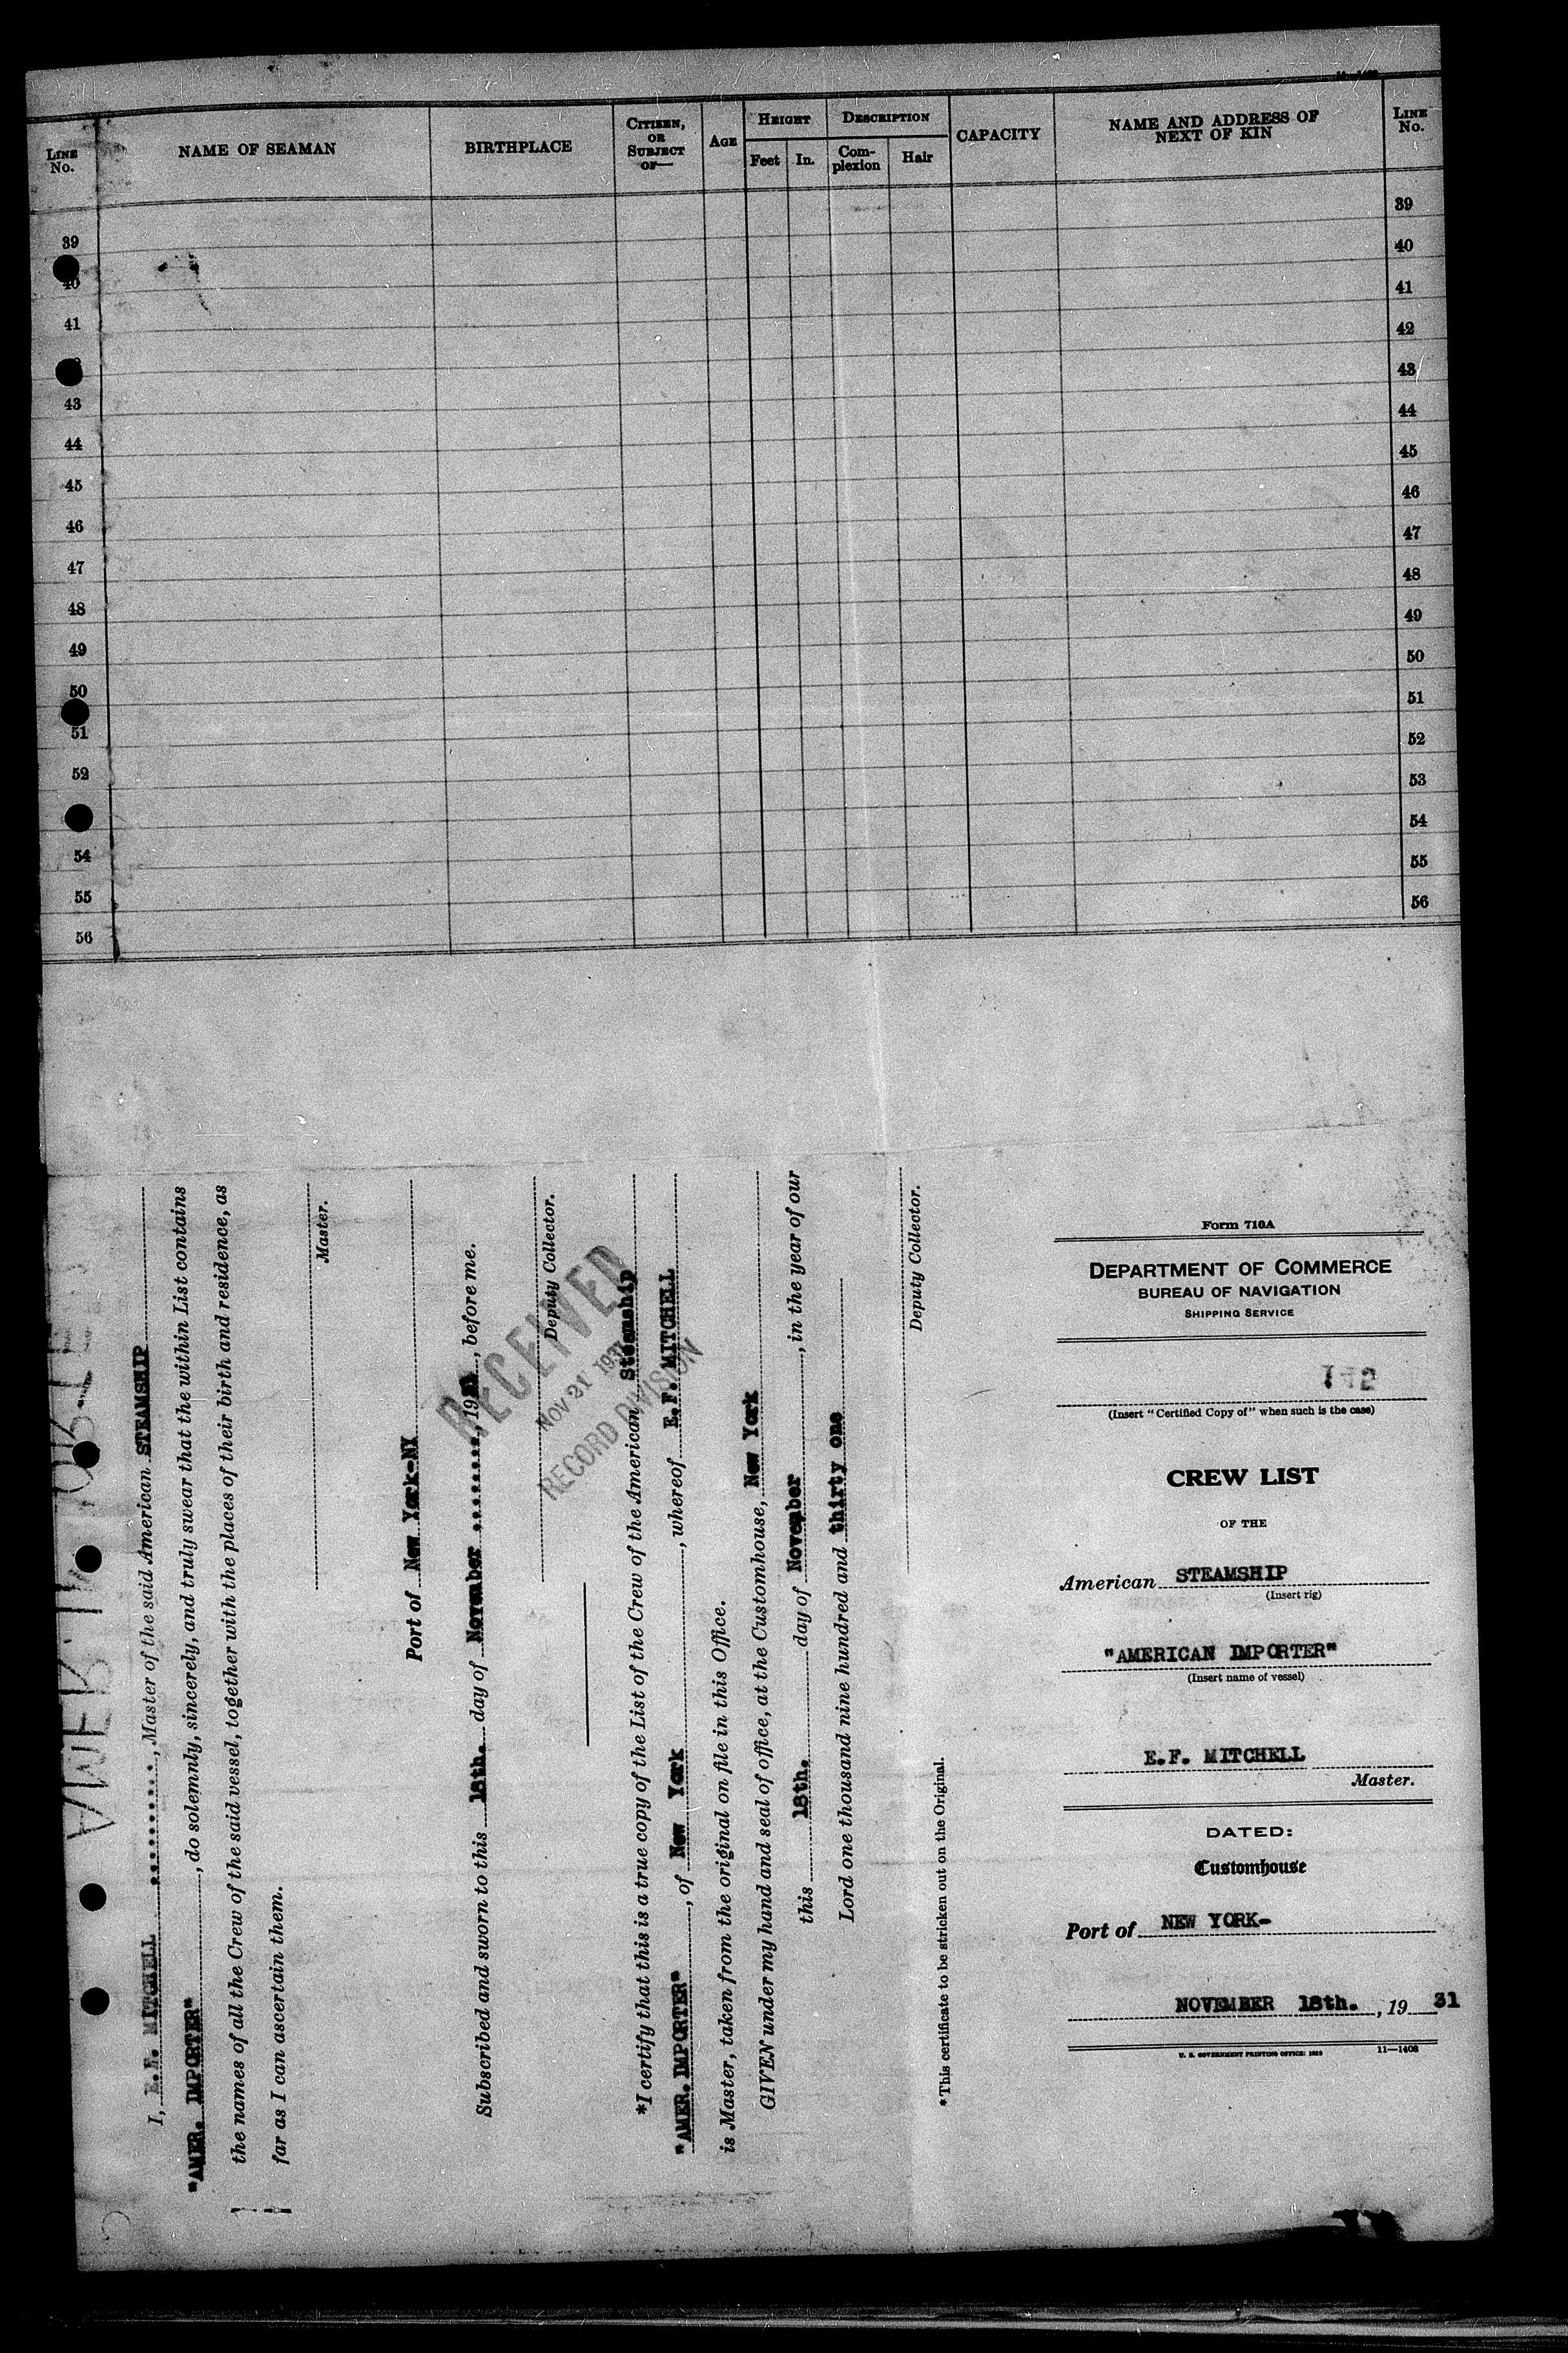 LINE No.
NAME OF SEAMAN
BIRTHPLACE
CITIZEN, OR SUBJECT OF—
AGE
HEIGHT
Feet
In.
DESCRIPTION
Complexion
Hair
CAPACITY
NAME AND ADDRESS OF NEXT OF KIN
LINE No.
39 39
40 40
41 41
42
43 43
44 44
45 45
46 46
47 47
48 48
49 49
50 50
51 51
52 52
53
54 54
55 55
56 56
I, E.F. MITCHELL ........., Master of the said American STEAMSHIP
"AMER. IMPORTER", do solemnly, sincerely, and truly swear that the within List contains
the names of all the Crew of the said vessel, together with the places of their birth and residence, as
far as I can ascertain them.
Master.
Port of New York-NY
Subscribed and sworn to this 18th. day of November ........, 19, before me.
Deputy Collector.
RECEIVED
NOV 21 1931
RECORD DIVISION
*I certify that this is a true copy of the List of the Crew of the American Steamship
"AMER. IMPORTER", of New York, whereof E.F. MITCHELL
is Master, taken from the original on file in this Office.
GIVEN under my hand and seal of office, at the Customhouse, New York
this 18th. day of November, in the year of our
Lord one thousand nine hundred and thirty one
Deputy Collector.
*This certificate to be stricken out on the Original.
Form 710A
DEPARTMENT OF COMMERCE
BUREAU OF NAVIGATION
SHIPPING SERVICE
(Insert "Certified Copy of" when such is the case)
CREW LIST
OF THE
American STEAMSHIP
(Insert rig)
"AMERICAN IMPORTER"
(Insert name of vessel)
E.F. MITCHELL
Master.
DATED:
Customhouse
Port of NEW YORK-
NOVEMBER 18th., 19 31
U. S. GOVERNMENT PRINTING OFFICE: 11—1408